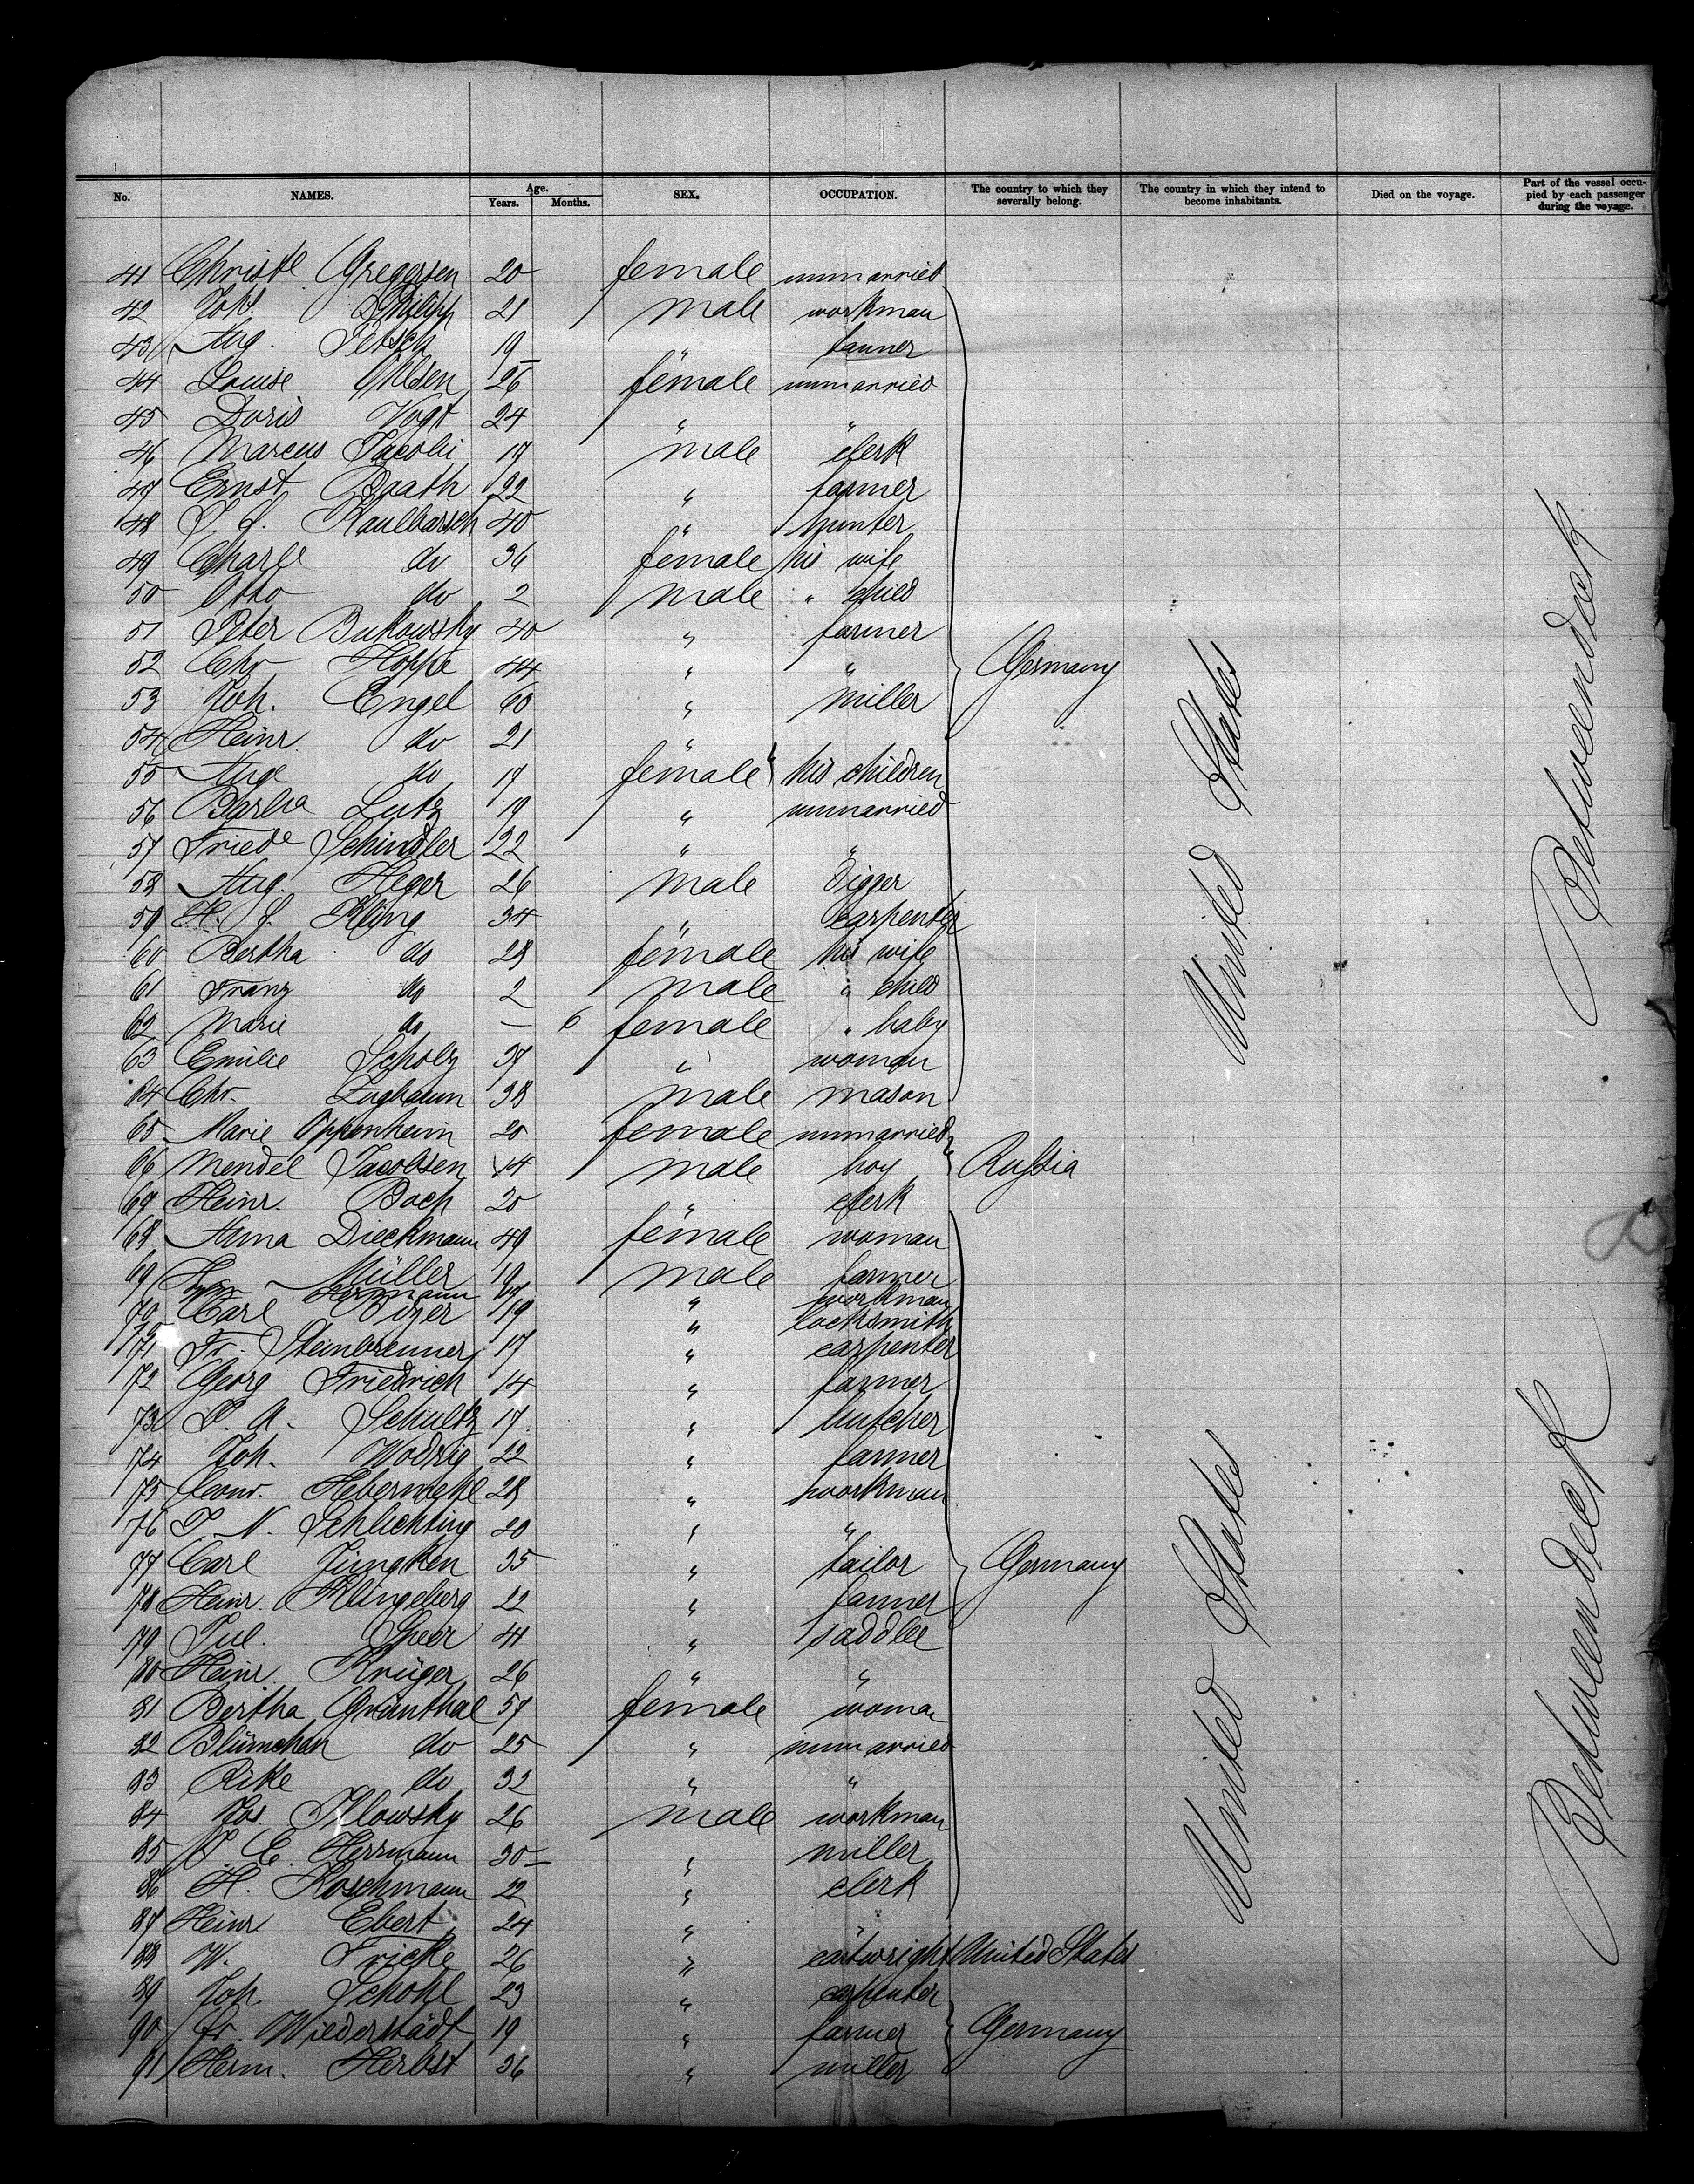 No. NAMES. Age. Years. Months. SEX. OCCUPATION. The country to which they severally belong. The country in which they intend to become inhabitants. Died on the voyage. Part of the vessel occupied by each passenger during the voyage.
41 Christe Gregersen 20 female unmarried
42 Joh. Philipp 21 male workman
43 Aug. Petsch 19 " farmer
44 Louise Ohlsen 26 female unmarried
45 Doris Vogt 24 " "
46 Marcus Jacobi 17 male clerk
47 Ernst Boath 22 " farmer
48 J. J. Kaulbarsch 40 " hunter
49 Charle do 36 female his wife
50 Otto do 2 male " child
51 Peter Bukowsky 40 " farmer
52 Chr Hoppe 44 " " Germany
53 Joh. Engel 60 " miller
54 Heinr. do 21 "
55 Auge do 17 female his children
56 Barba Lutz 19 " unmarried
57 Friede Schindler 22 " "
58 Aug. Heger 26 male digger
59 H. J. Kling 34 " carpenter
60 Bertha do 28 female his wife
61 Franz do 2 male " child
62 Marie do — 6 female " baby
63 Emilie Scholz 37 " woman
64 Chr. Zughaum 38 male mason
65 Marie Oppenheim 20 female unmarried
66 Mendel Jacobsen 14 male boy Russia
69 Heinr. Boch 20 " clerk
68 Anna Dieckmann 49 female woman
69 Müller 19 male farmer
Herrmann " workman
70 Carl Bizer 19 " locksmith
71 Fr. Steinbrenner 17 " carpenter
72 Georg Friedrich 14 " farmer
73 P. A. Schultz 17 " butcher
74 Joh. Wodrig 22 " farmer
75 Conr. Habermehl 28 " workman
76 P N. Schlichting 20 " "
77 Carl Jungken 35 " tailor Germany
78 Heinr. Klingeberg 22 " farmer
79 Jul. Speer 41 " saddler
80 Heinr. Krüger 26 " "
81 Bertha Grünthal 57 female woman
82 Blümchen do 25 " unmarried
83 Rike do 32 " "
84 Jos. Illowsky 26 male workman
85 C. Herrmann 30 " miller
86 H. Koschmann 22 " clerk
87 Heinr Ebert 24 " "
88 W. Fricke 26 " cartwright United States
89 Joh. Schohl 23 " carpenter
90 Fr. Wiederstädt 19 " farmer Germany
91 Herm. Herbst 36 " miller
United States
United States
Betweendeck
Betweendeck